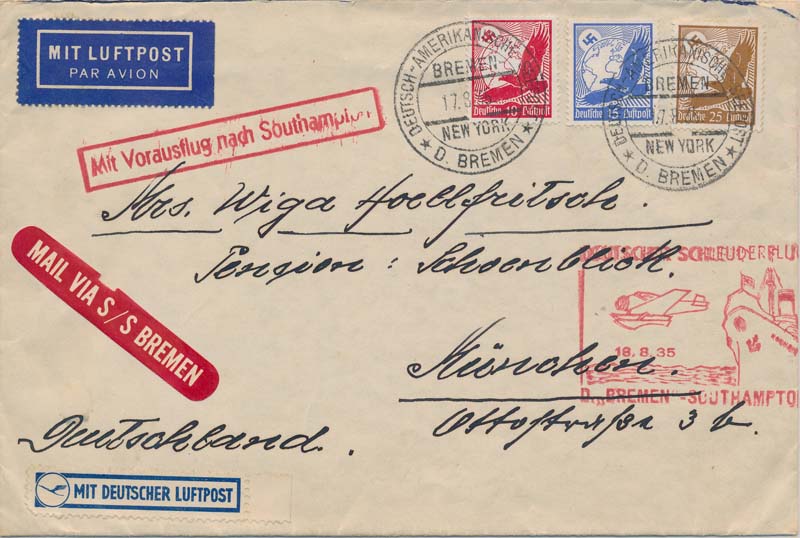 MIT LUFTPOST
PAR AVION
Mit Vorausflug nach Southampton
DEUTSCH-AMERIKANISCHE
BREMEN-
17.8
NEW YORK
★ D. BREMEN ★
10
Deutsche Luftpost
15
Deutsche Luftpost
Deutsche 25 Luftpost
BREMEN
NEW YORK
★ D. BREMEN ★
Mrs. Wiga Hoellfritsch.
Pension: Schoenblick.
München.
Ottostraße 3 b.
Deutschland.
MAIL VIA S/S BREMEN
DEUTSCHER SCHLEUDERFLU
18.8.35
D. „BREMEN"-SOUTHAMPTO
MIT DEUTSCHER LUFTPOST